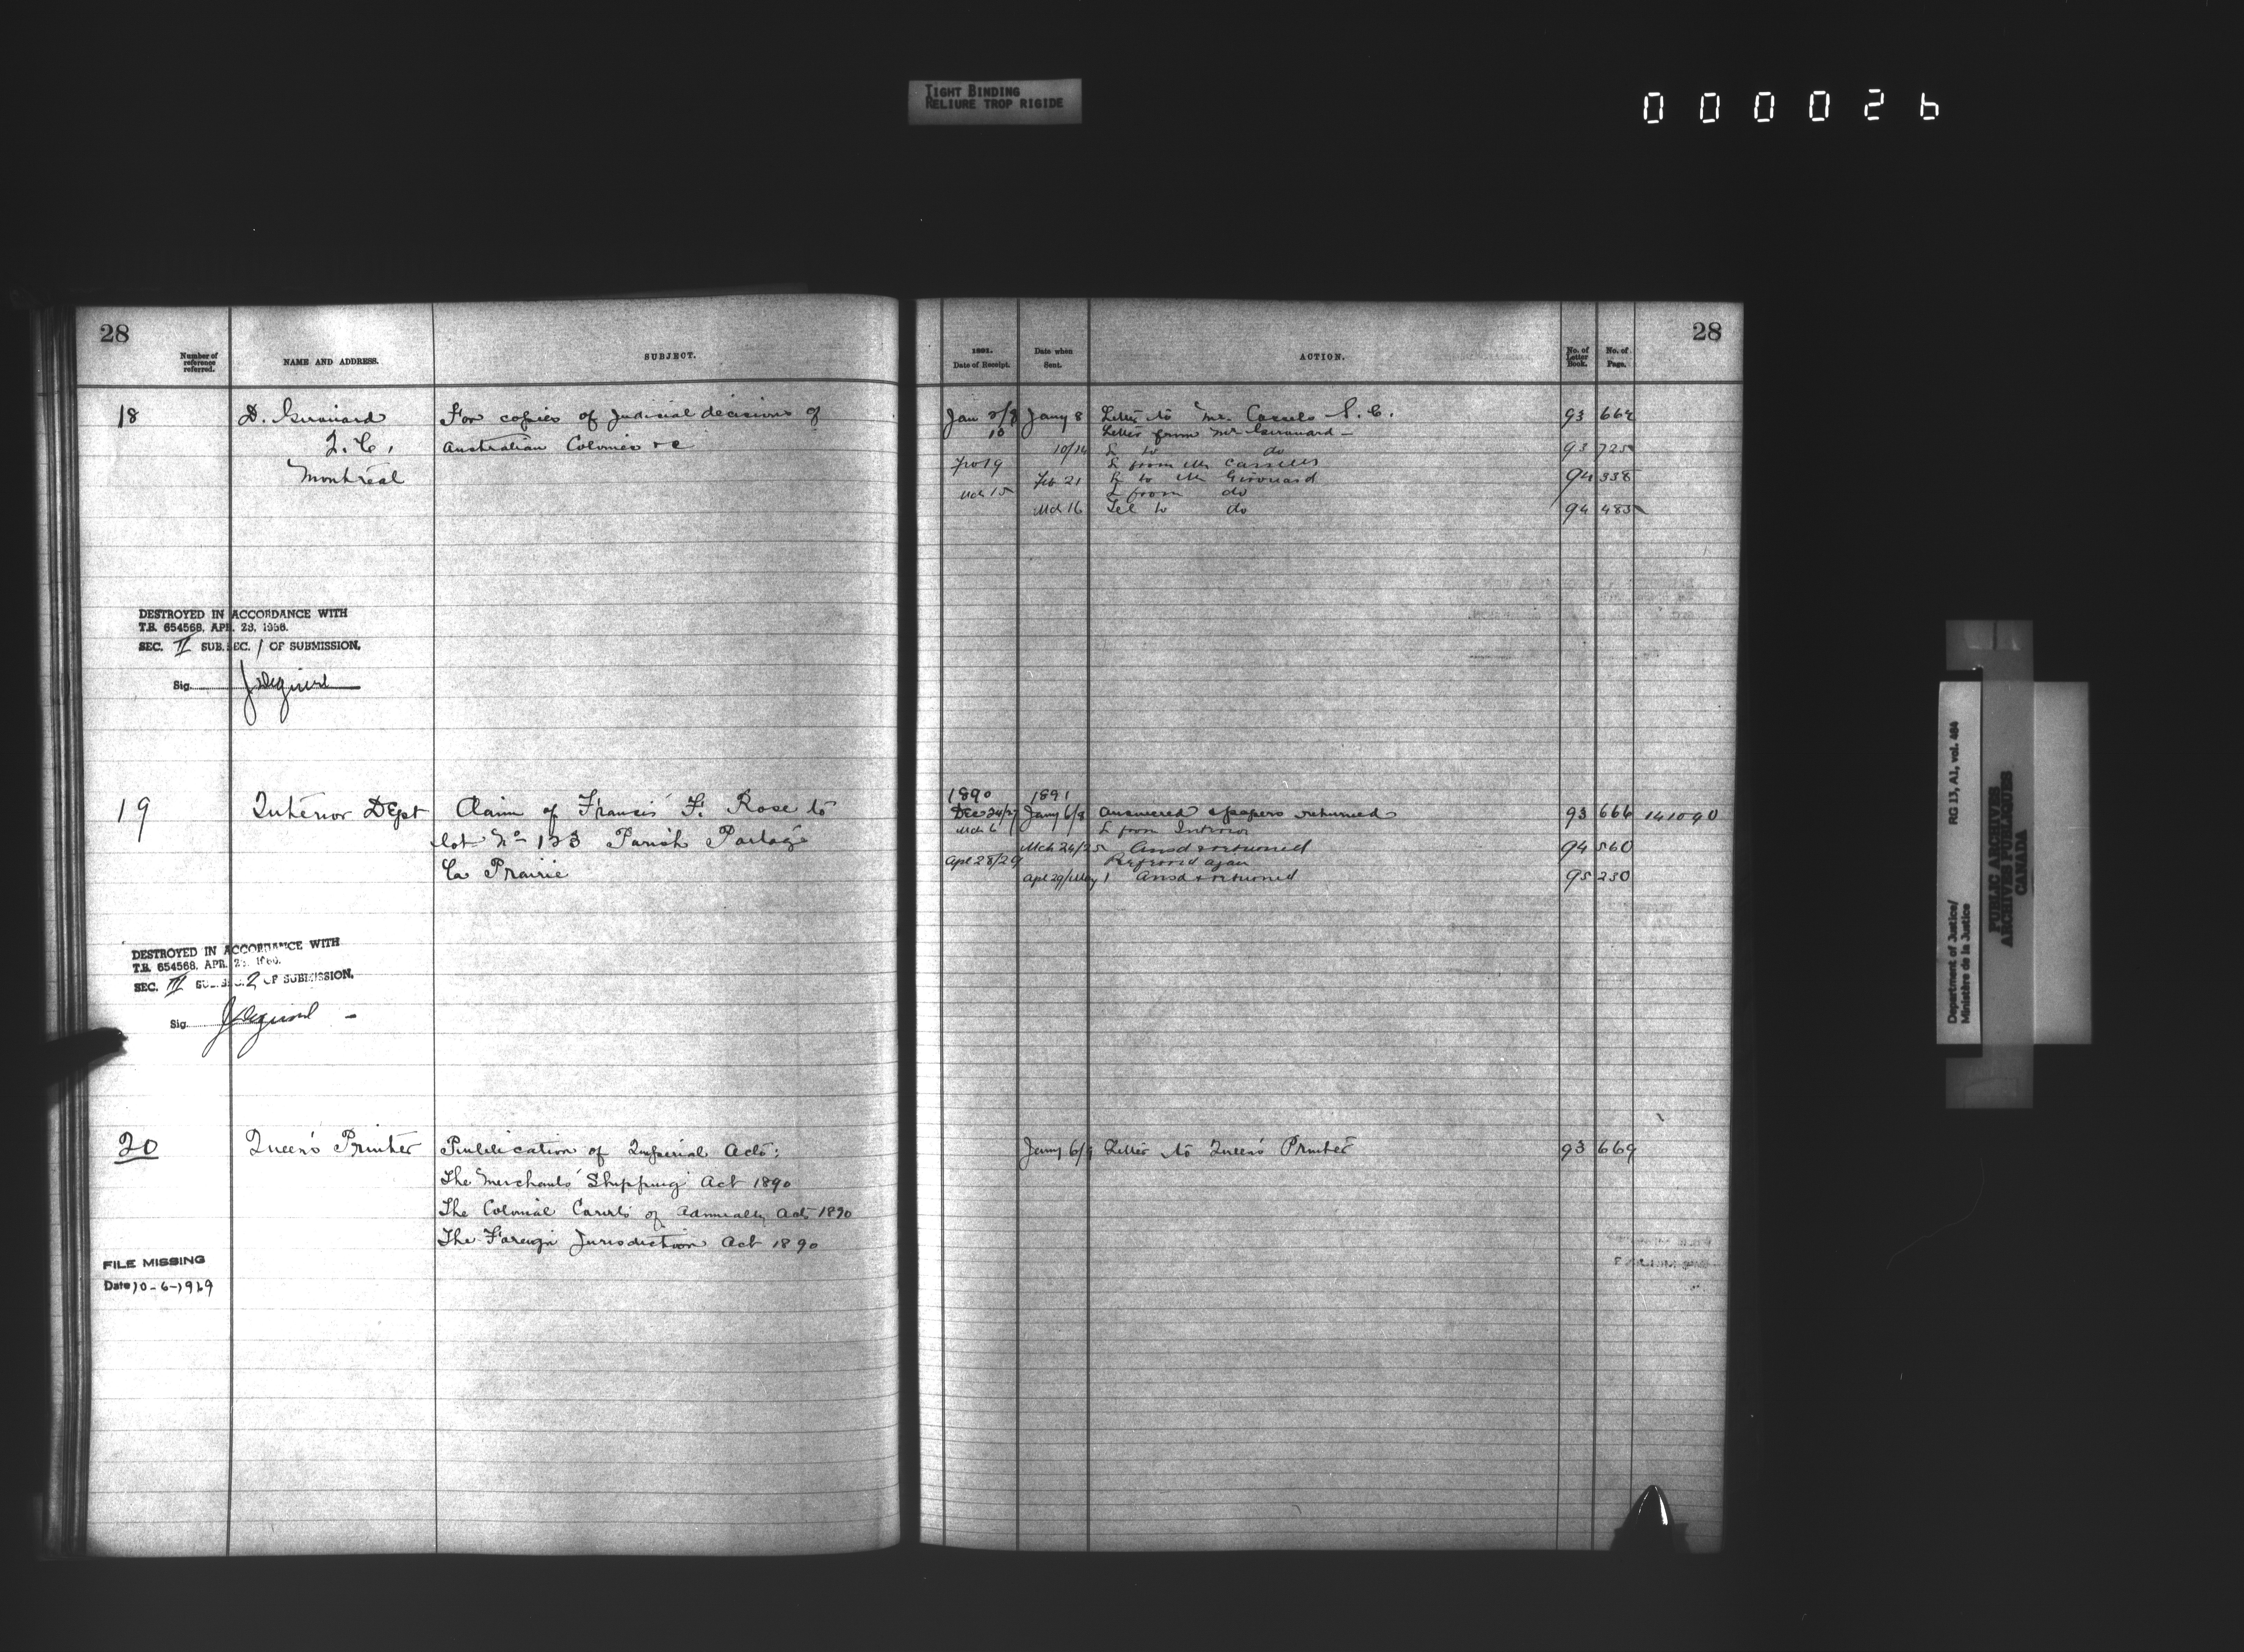 TIGHT BINDING
RELIURE TROP RIGIDE
000026
28
Number of
reference
referred.
NAME AND ADDRESS.
SUBJECT.
18
D. Girouard
Q.C.,
Montreal
For copies of Judicial decisions of
Australian Colonies &c
DESTROYED IN ACCORDANCE WITH
T.B. 654568, APR. 28, 1966.
SEC. II SUB. SEC. 1 OF SUBMISSION.
Sig.
19
Interior Dept
Claim of Francis F. Rose to
lot No 123 Parish Portage
La Prairie
DESTROYED IN ACCORDANCE WITH
T.B. 654568, APR.
SEC. III SUB. SEC. 2 OF SUBMISSION.
Sig.
20
Queen's Printer
Publication of Imperial Acts:
The Merchants Shipping Act 1890
The Colonial Courts of Admiralty Act 1890
The Foreign Jurisdiction Act 1890
FILE MISSING
Date 10-6-1969
28
1891.
Date of Receipt.
Date when
Sent.
ACTION.
No. of
Letter
Book.
No. of
Page.
Jany 8 Letter to Mr. Cassels S.C. 93 664
10 Letter from Mr Girouard
10/14 L to do 93 725
Feb 19 L from Mr Cassels
Feb 21 L to Mr Girouard 94 338
Mch 15 L from do
Mch 16 Tel to do 94 485
1890 1891
Dec 24/27 Jany 6/8 Answered & papers returned 93 666 141090
Mch 6 L from Interior
Mch 24/25 Ansd & returned 94 560
Apl 28/29 Referred again
Apl 29/May 1 Ansd & returned 95 230
Jany 6/9 Letter to Queen's Printer 93 669
Department of Justice/
Ministère de la Justice
RG 13, A1, vol. 484
PUBLIC ARCHIVES
ARCHIVES PUBLIQUES
CANADA